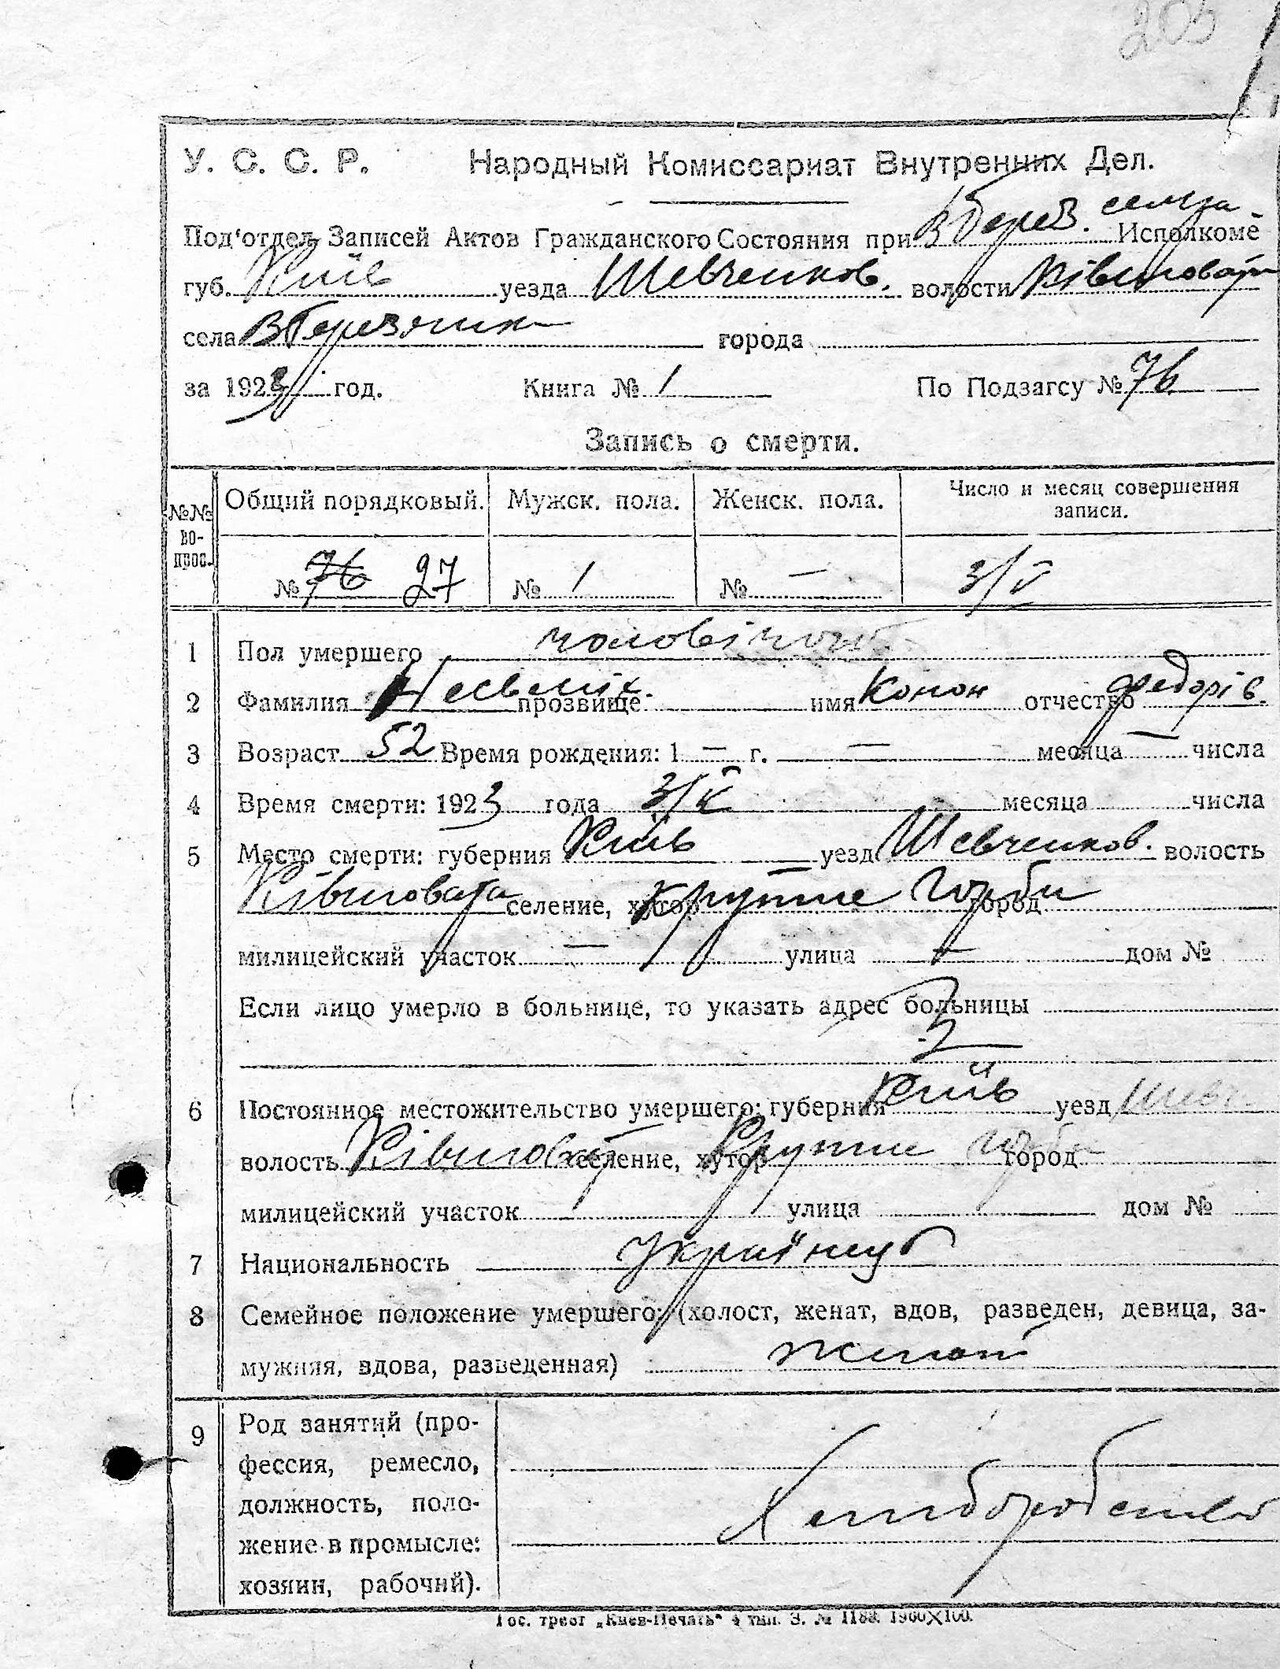 205
У. С. С. Р. Народный Комиссариат Внутренних Дел.
Под'отдел Записей Актов Гражданского Состояния при В Берез. Исполкоме
губ. Київ уезда Шевченков. волости
села В Березянка города
за 1923 год. Книга № 1 По Подзагсу № 76
Запись о смерти.
№№ вопрос. Общий порядковый. Мужск. пола. Женск. пола. Число и месяц совершения записи.
№ 76 27 № 1 № — 3/V
1 Пол умершего чоловічоі
2 Фамилия прозвище имя Конон отчество Федорів.
3 Возраст 52 Время рождения: 1 — г. — месяца — числа
4 Время смерти: 1923 года 3/V месяца числа
5 Место смерти: губерния Київ уезд Шевченков. волость
селение, хутор Крутие Горби город
милицейский участок — улица — дом №
Если лицо умерло в больнице, то указать адрес больницы
6 Постоянное местожительство умершего: губерния Київ уезд Шевч
волость селение, хутор Крутие Горби город
милицейский участок улица дом №
7 Национальность
8 Семейное положение умершего: (холост, женат, вдов, разведен, девица, за-
мужняя, вдова, разведенная) Женат
9 Род занятий (про-
фессия, ремесло,
должность, поло-
жение в промысле:
хозяин, рабочий).
Гос. трест „Киев-Печать" 4 тип. З. № 1188. 1960×100.